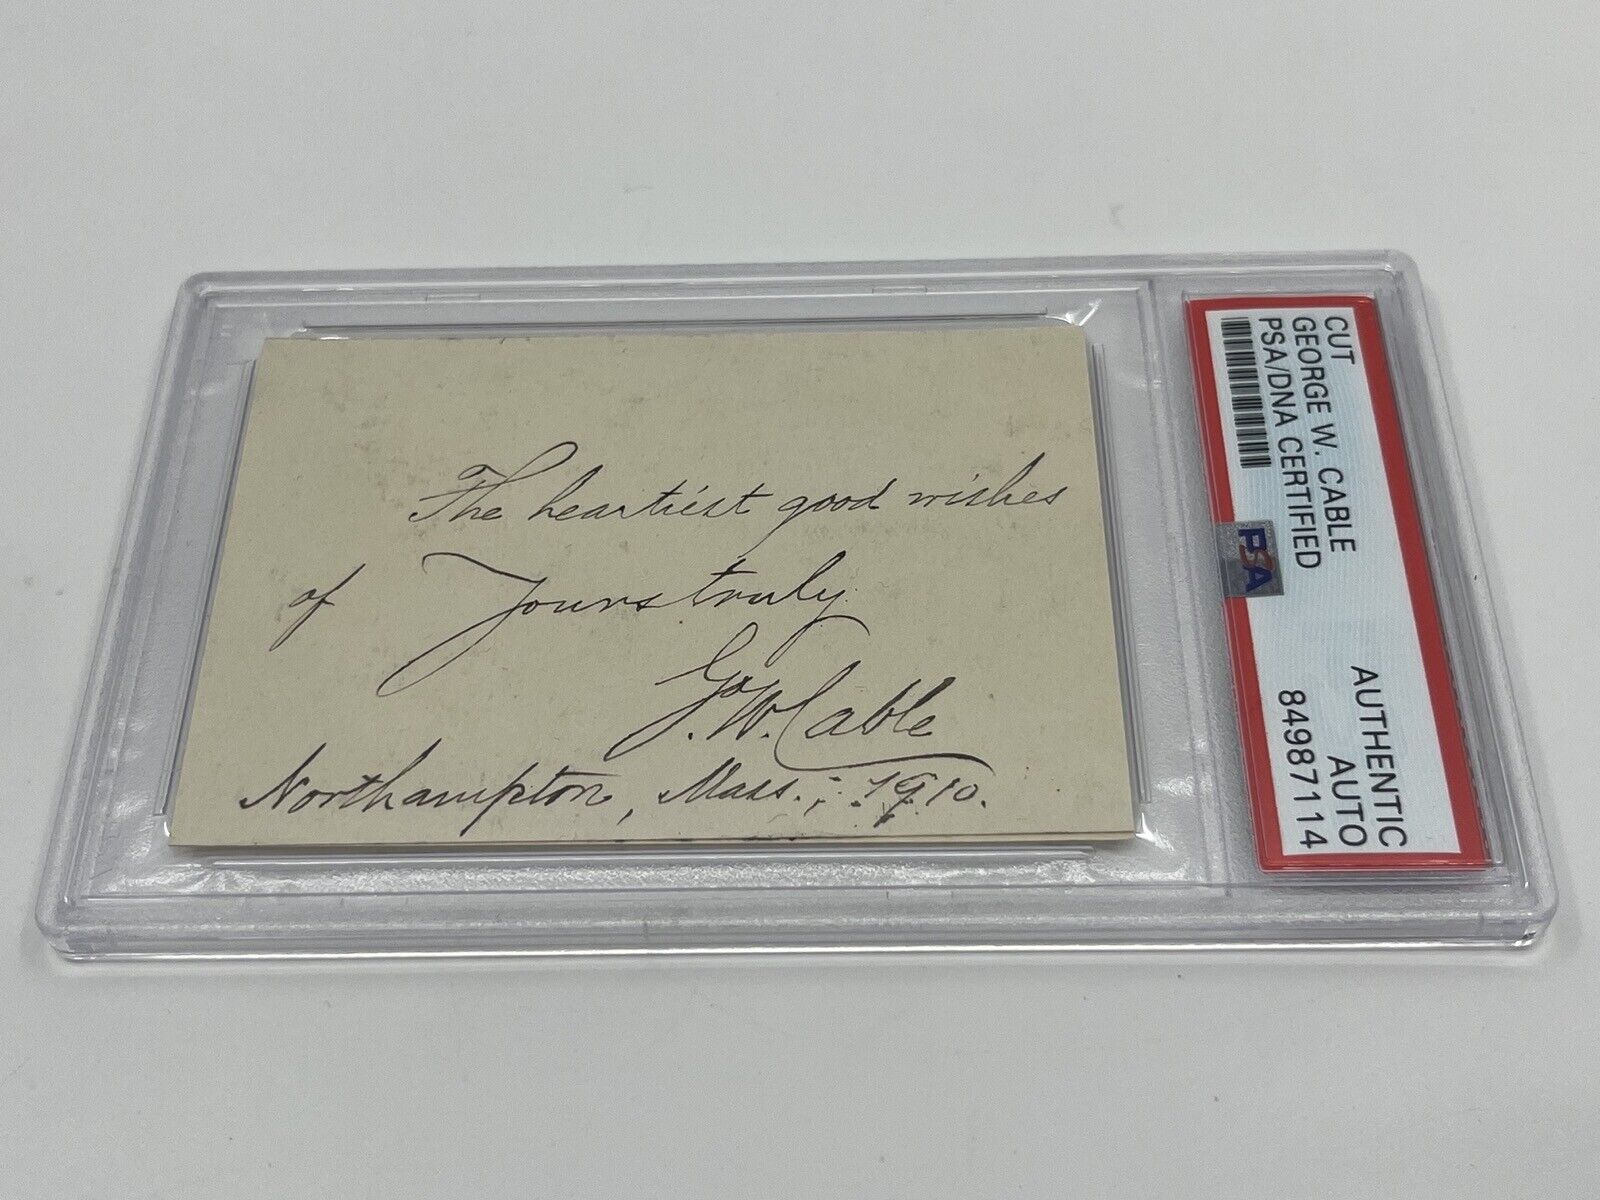 The heartiest good wishes
of Yours truly
G. W. Cable
Northampton, Mass.; 1910.
CUT
GEORGE W. CABLE
PSA/DNA CERTIFIED
AUTHENTIC
AUTO
84987114
PSA